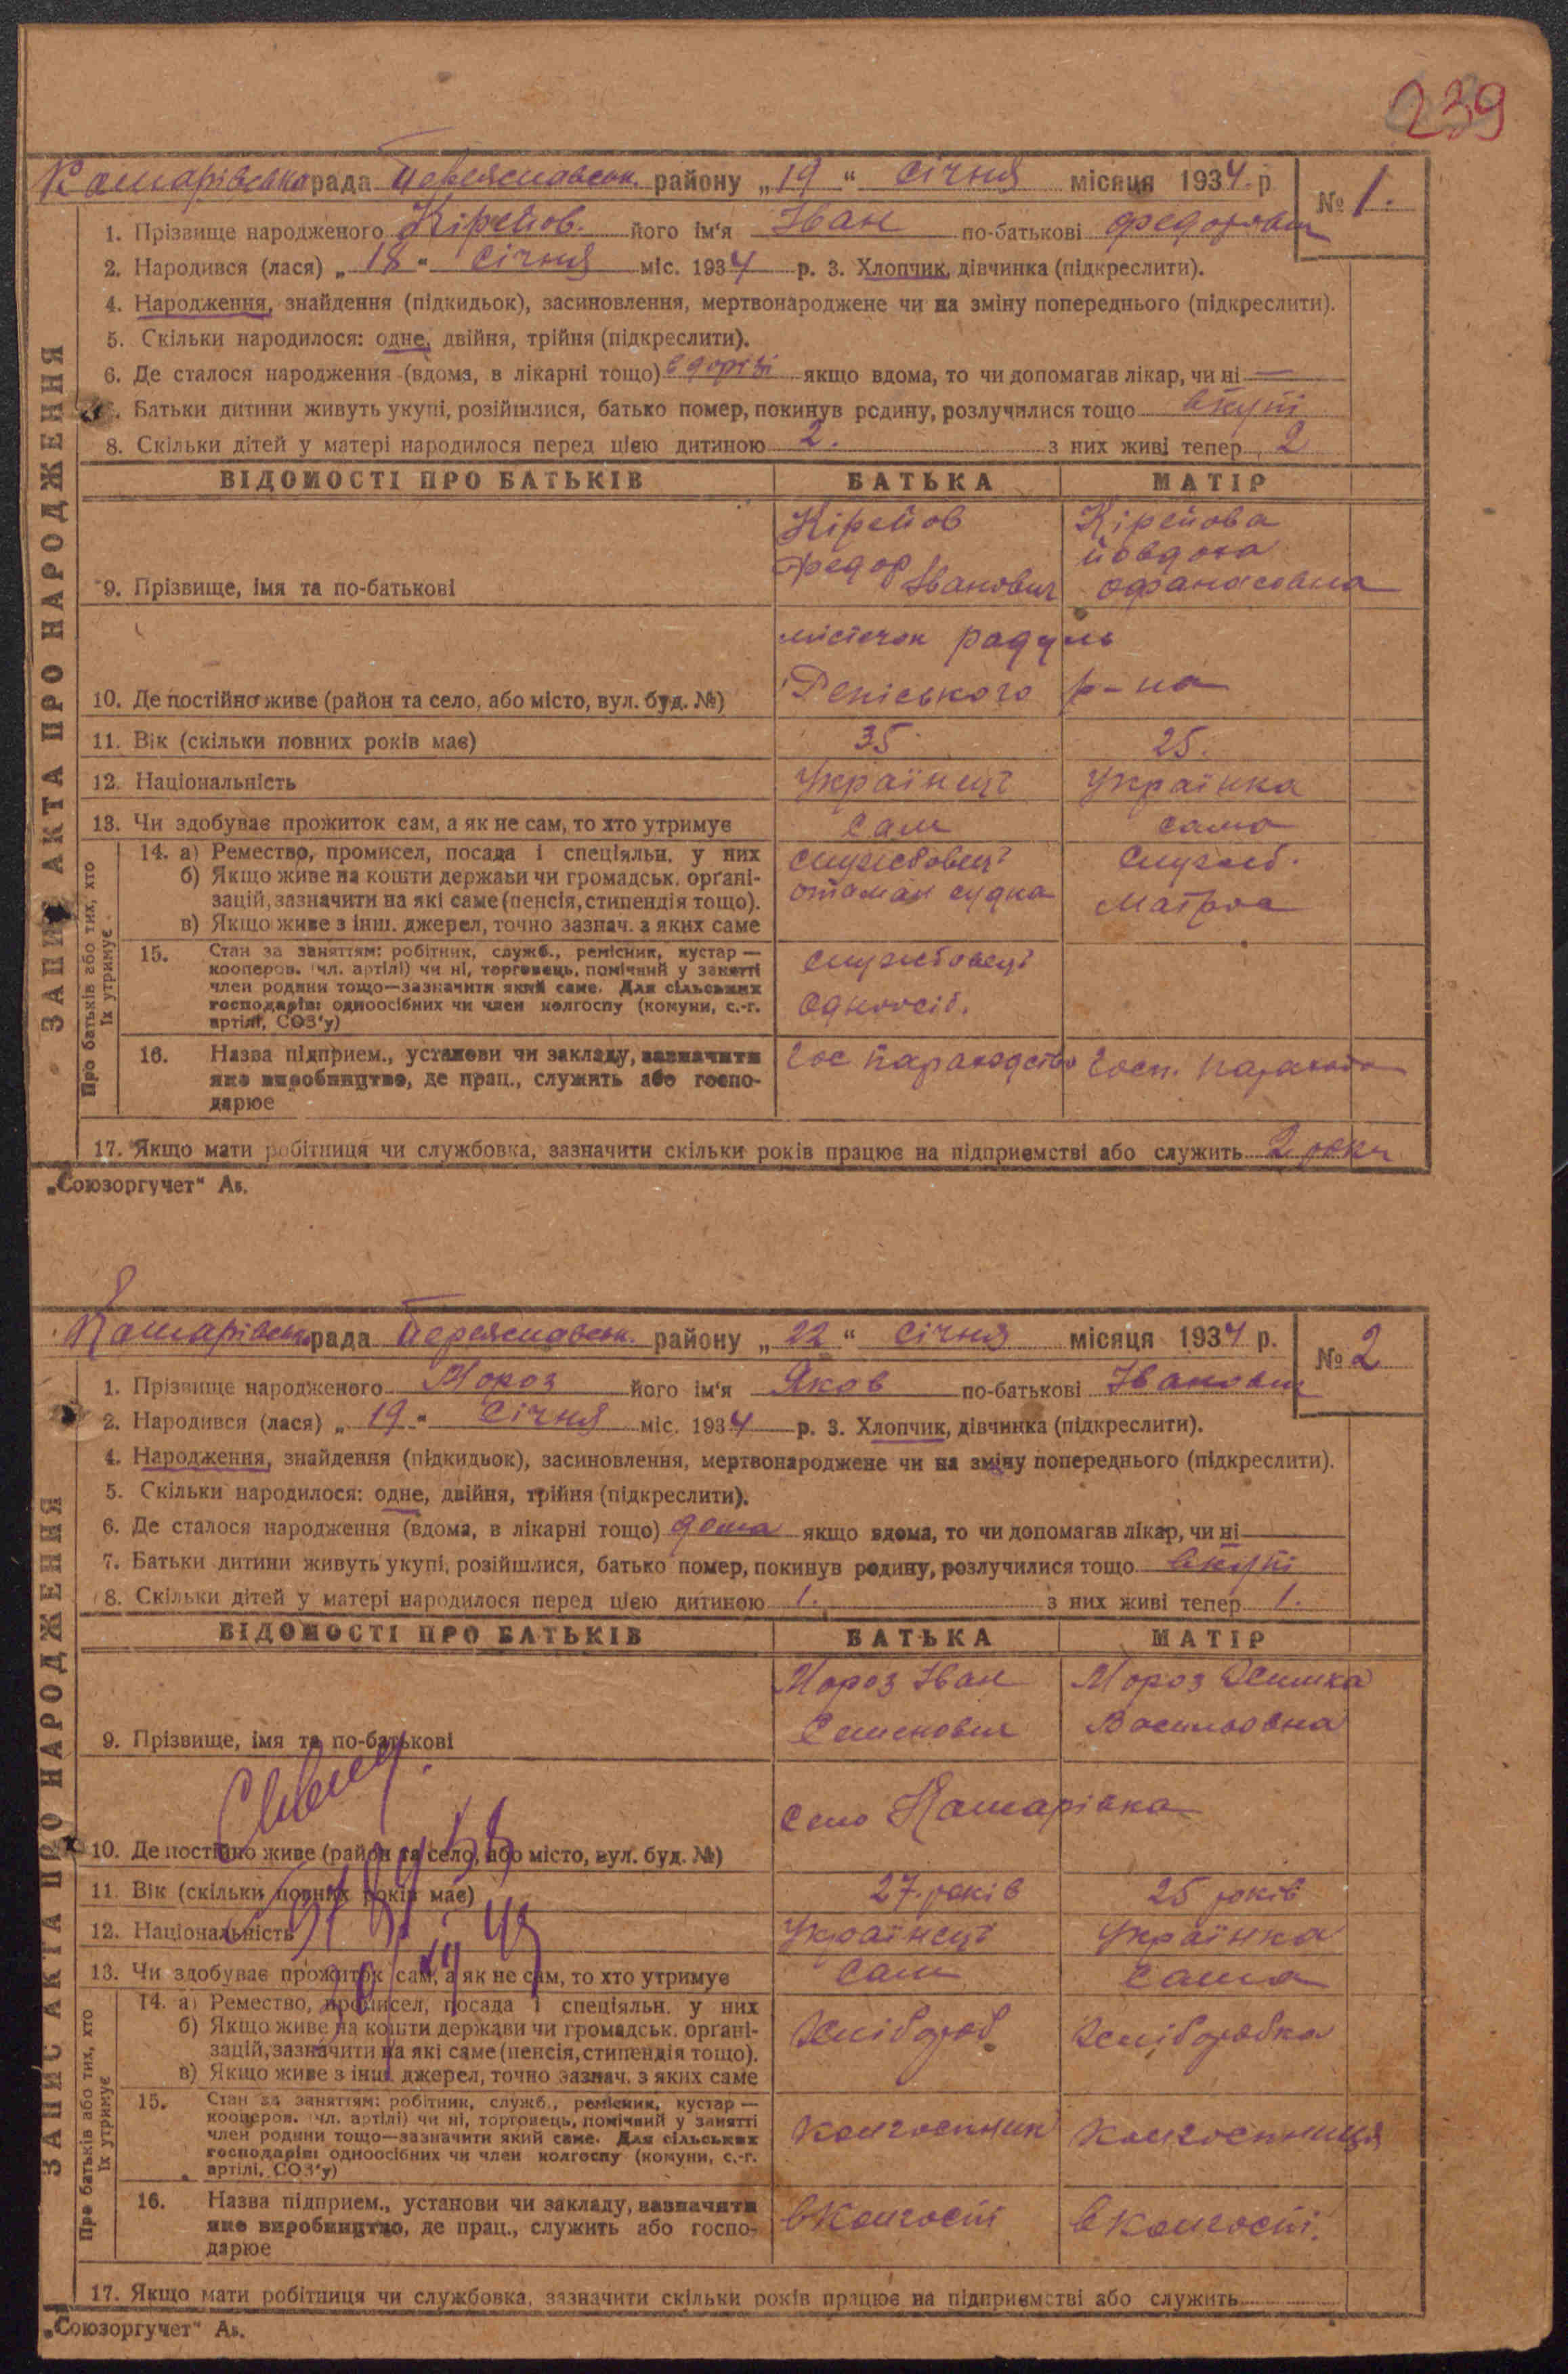 239
Комарівська рада Переяславськ. району „19“ Січня місяця 1934 р № 1.
1. Прізвище народженого Кірейов. його ім'я Іван по-батькові Федорович
2. Народився (лася) „18“ Січня міс. 1934 р. 3. Хлопчик, дівчинка (підкреслити).
4. Народження, знайдення (підкидьок), засиновлення, мертвонароджене чи на зміну попереднього (підкреслити).
5. Скільки народилося: одне, двійня, трійня (підкреслити).
6. Де сталося народження (вдома, в лікарні тощо) в дорізі якщо вдома, то чи допомагав лікар, чи ні —
Батьки дитини живуть укупі, розійшлися, батько помер, покинув родину, розлучилися тощо вкупі
8. Скільки дітей у матері народилося перед цією дитиною 2. з них живі тепер 2
ВІДОМОСТІ ПРО БАТЬКІВ БАТЬКА МАТІР
9. Прізвище, імя та по-батькові
Кірейов Федор Іванович
Кірейова Йовдоха Офанасовна
10. Де постійно живе (район та село, або місто, вул. буд. №)
містечок Радуль
Репіського р-на
11. Вік (скільки повних років має) 35 25.
12. Національність Українець Українка
13. Чи здобуває прожиток сам, а як не сам, то хто утримує Сам сама
14. а) Ремество, промисел, посада і спеціяльн. у них
б) Якщо живе на кошти держави чи громадськ. орґані-
зацій, зазначити на які саме (пенсія, стипендія тощо).
в) Якщо живе з інш. джерел, точно зазнач. з яких саме
службовець
отаман судна
Служб.
Матрос
15. Стан за заняттям: робітник, служб., ремісник, кустар —
кооперов. (чл. артілі) чи ні, торговець, помічний у занятті
член родини тощо—зазначити який саме. Для сільських
господарів: одноосібних чи член колгоспу (комуни, с.-г.
артілі, СОЗ'у)
службовець
Одноосіб.
16. Назва підприєм., установи чи закладу, зазначити
яке виробництво, де прац., служить або госпо-
дарює
Гос параходство
Госп. парахода
17. Якщо мати робітниця чи службовка, зазначити скільки років працює на підприємстві або служить 2 роки
ЗАПИС АКТА ПРО НАРОДЖЕННЯ
Про батьків або тих, хто
їх утримує
„Союзоргучет“ Ав.
Комарівськ рада Переяславськ. району „22“ Січня місяця 1934 р. № 2
1. Прізвище народженого Мороз його ім'я Яков по-батькові Іванович
2. Народився (лася) „19“ Січня міс. 1934 р. 3. Хлопчик, дівчинка (підкреслити).
4. Народження, знайдення (підкидьок), засиновлення, мертвонароджене чи на зміну попереднього (підкреслити).
5. Скільки народилося: одне, двійня, трійня (підкреслити).
6. Де сталося народження (вдома, в лікарні тощо) дома якщо вдома, то чи допомагав лікар, чи ні
7. Батьки дитини живуть укупі, розійшлися, батько помер, покинув родину, розлучилися тощо вкупі
8. Скільки дітей у матері народилося перед цією дитиною 1. з них живі тепер 1.
ВІДОМОСТІ ПРО БАТЬКІВ БАТЬКА МАТІР
9. Прізвище, імя та по-батькові
Мороз Іван
Семенович
Мороз
Васильовна
10. Де постійно живе (район та село, або місто, вул. буд. №)
Село Комарівка
11. Вік (скільки повних років має) 27 років 25 років
12. Національність Українець Українка
13. Чи здобуває прожиток сам, а як не сам, то хто утримує Сам Сама
14. а) Ремество, промисел, посада і спеціяльн. у них
б) Якщо живе на кошти держави чи громадськ. орґані-
зацій, зазначити на які саме (пенсія, стипендія тощо).
в) Якщо живе з інш. джерел, точно зазнач. з яких саме
Хлібороб
Хліборобка
15. Стан за заняттям: робітник, служб., ремісник, кустар —
кооперов. (чл. артілі) чи ні, торговець, помічний у занятті
член родини тощо—зазначити який саме. Для сільських
господарів: одноосібних чи член колгоспу (комуни, с.-г.
артілі, СОЗ'у)
Колгоспник
Колгоспниця
16. Назва підприєм., установи чи закладу, зазначити
яке виробництво, де прац., служить або госпо-
дарює
в Колгоспі
в Колгоспі.
17. Якщо мати робітниця чи службовка, зазначити скільки років працює на підприємстві або служить
ЗАПИС АКТА ПРО НАРОДЖЕННЯ
Про батьків або тих, хто
їх утримує
„Союзоргучет“ Ав.